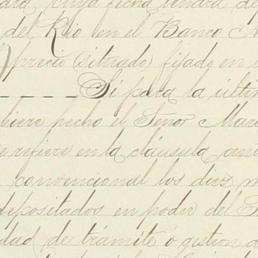 del Rio en el Banco
precio (sitrado) fijado en
Si para la últim
hecho el Señor Marc
refiere en la cláusula
convencional los diez
depositados en poder del
dad de trámite ó gestion